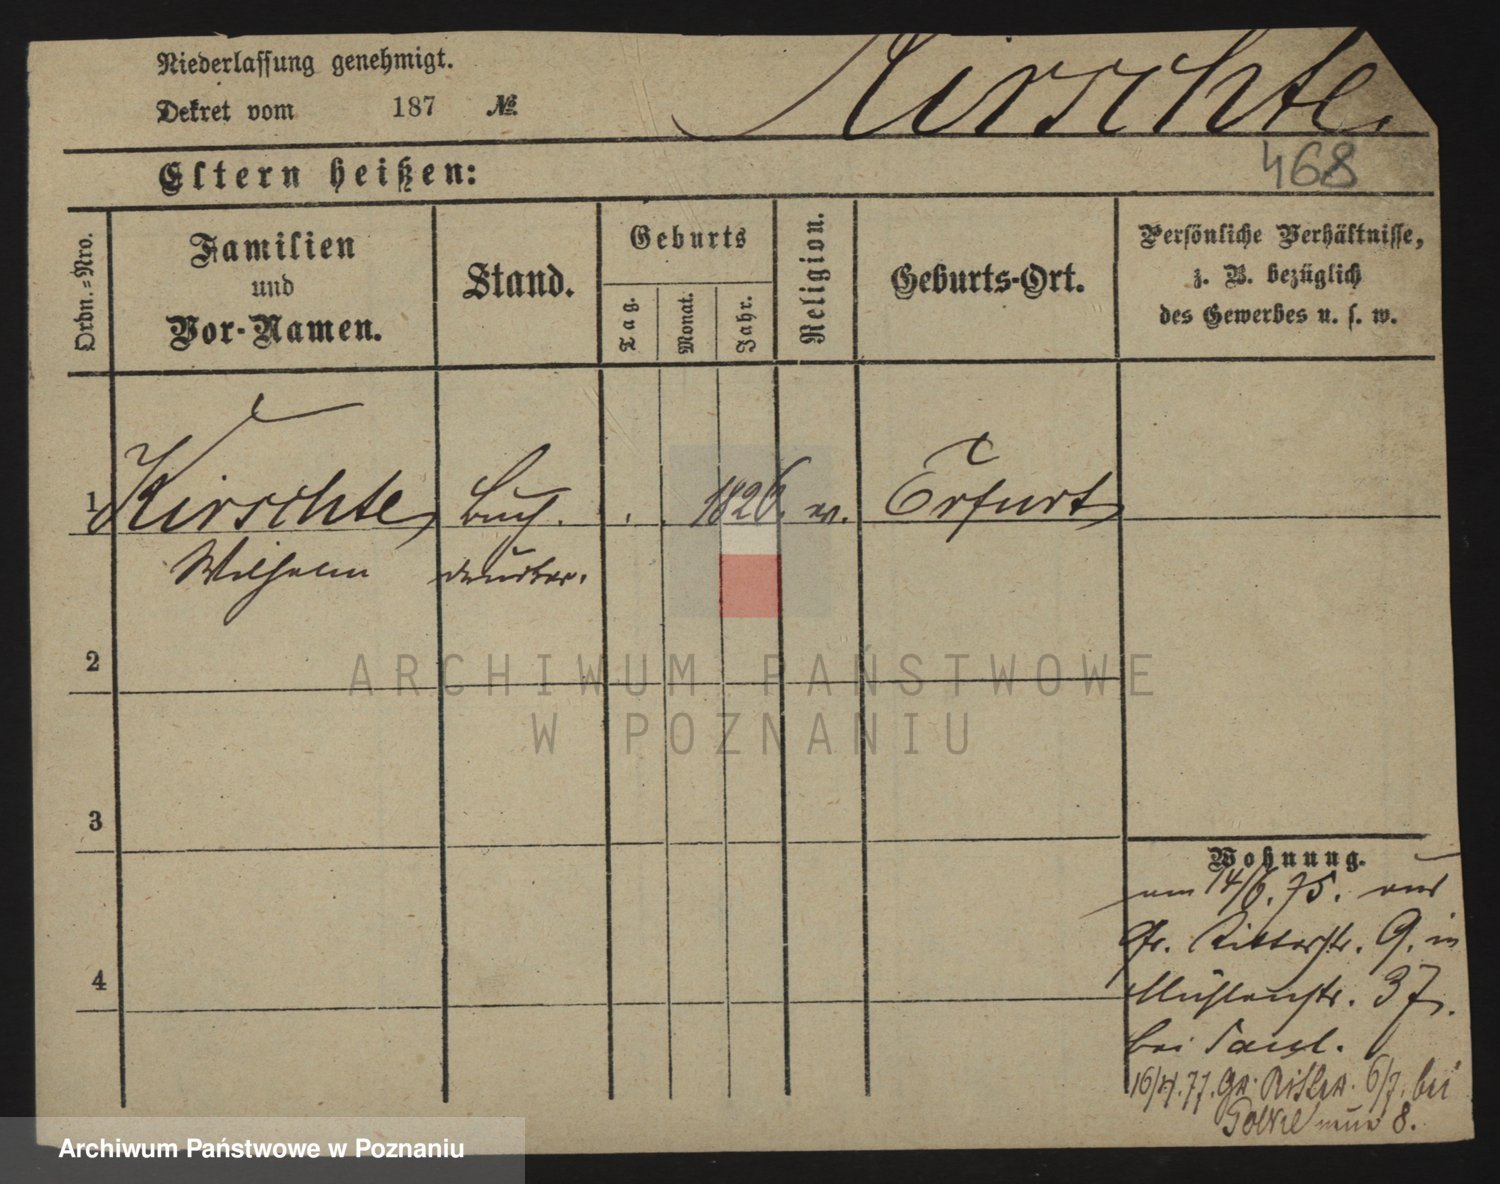 Niederlassung genehmigt.
Kirschte.
Dekret vom 187 №
Eltern heißen:
468
Ordn.-Nro.
Familien
und
Vor-Namen.
Stand.
Geburts
Tag.
Monat.
Jahr.
Religion.
Geburts-Ort.
Persönliche Verhältnisse,
z. B. bezüglich
des Gewerbes u. s. w.
1 Kirschte, Buch. . . 1826. ev. Erfurt,
Wilhelm drucker.
2
ARCHIWUM PAŃSTWOWE
W POZNANIU
3
Wohnung.
am 14/6. 75. aus
Gr. Ritterstr. 9. in
4
Mühlenstr. 37.
bei
16/4. 77. Gr. Ritter. 6/7. bei
8.
Archiwum Państwowe w Poznaniu